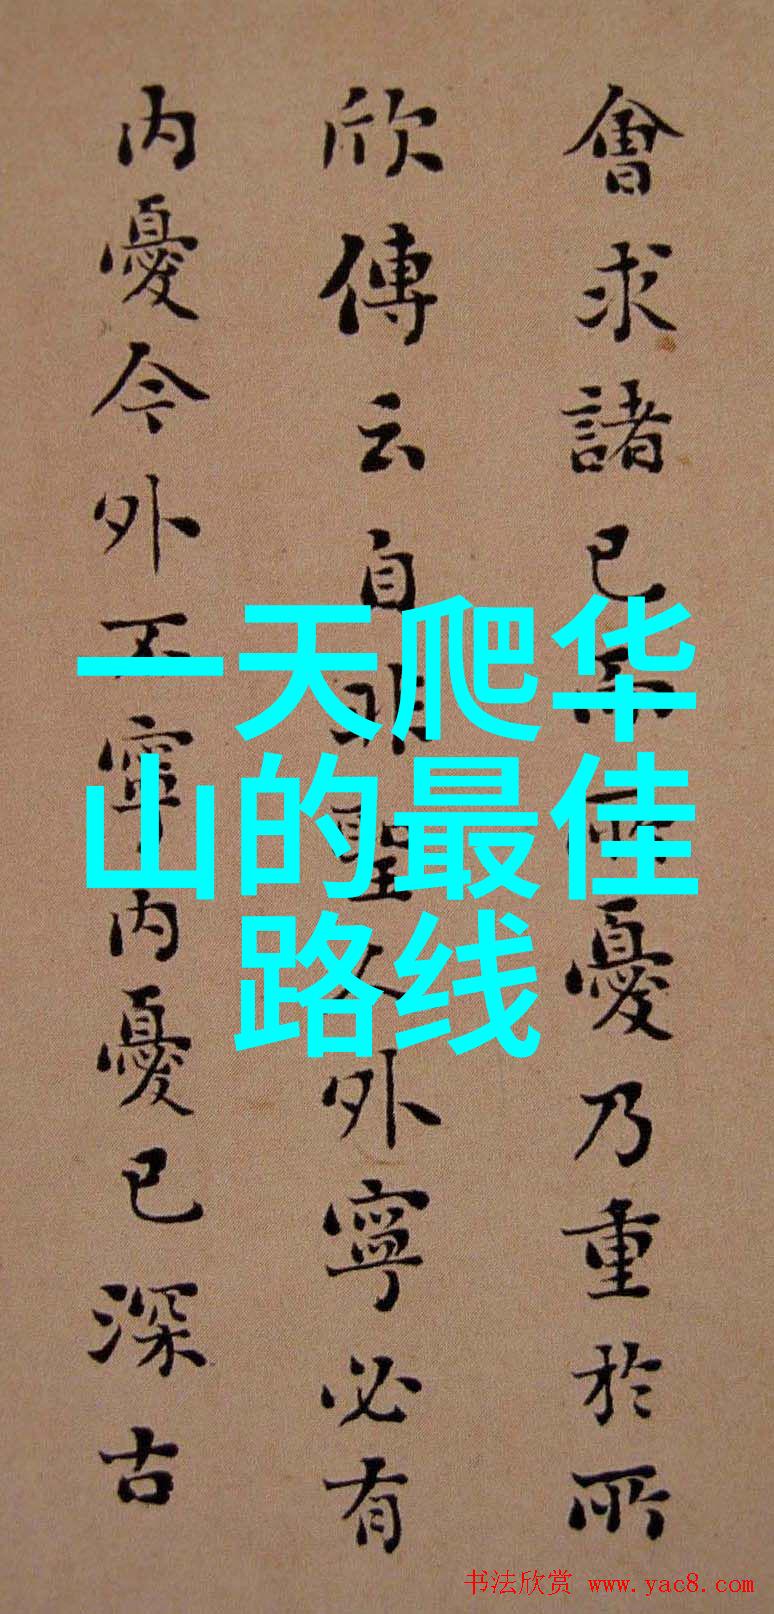 會求諸己而所憂乃重於所
欣傳云自非聖人外寧必有
内憂今外不寧内憂已深古
一天爬华
山的最佳
路线
书法欣赏 www.yac8.com